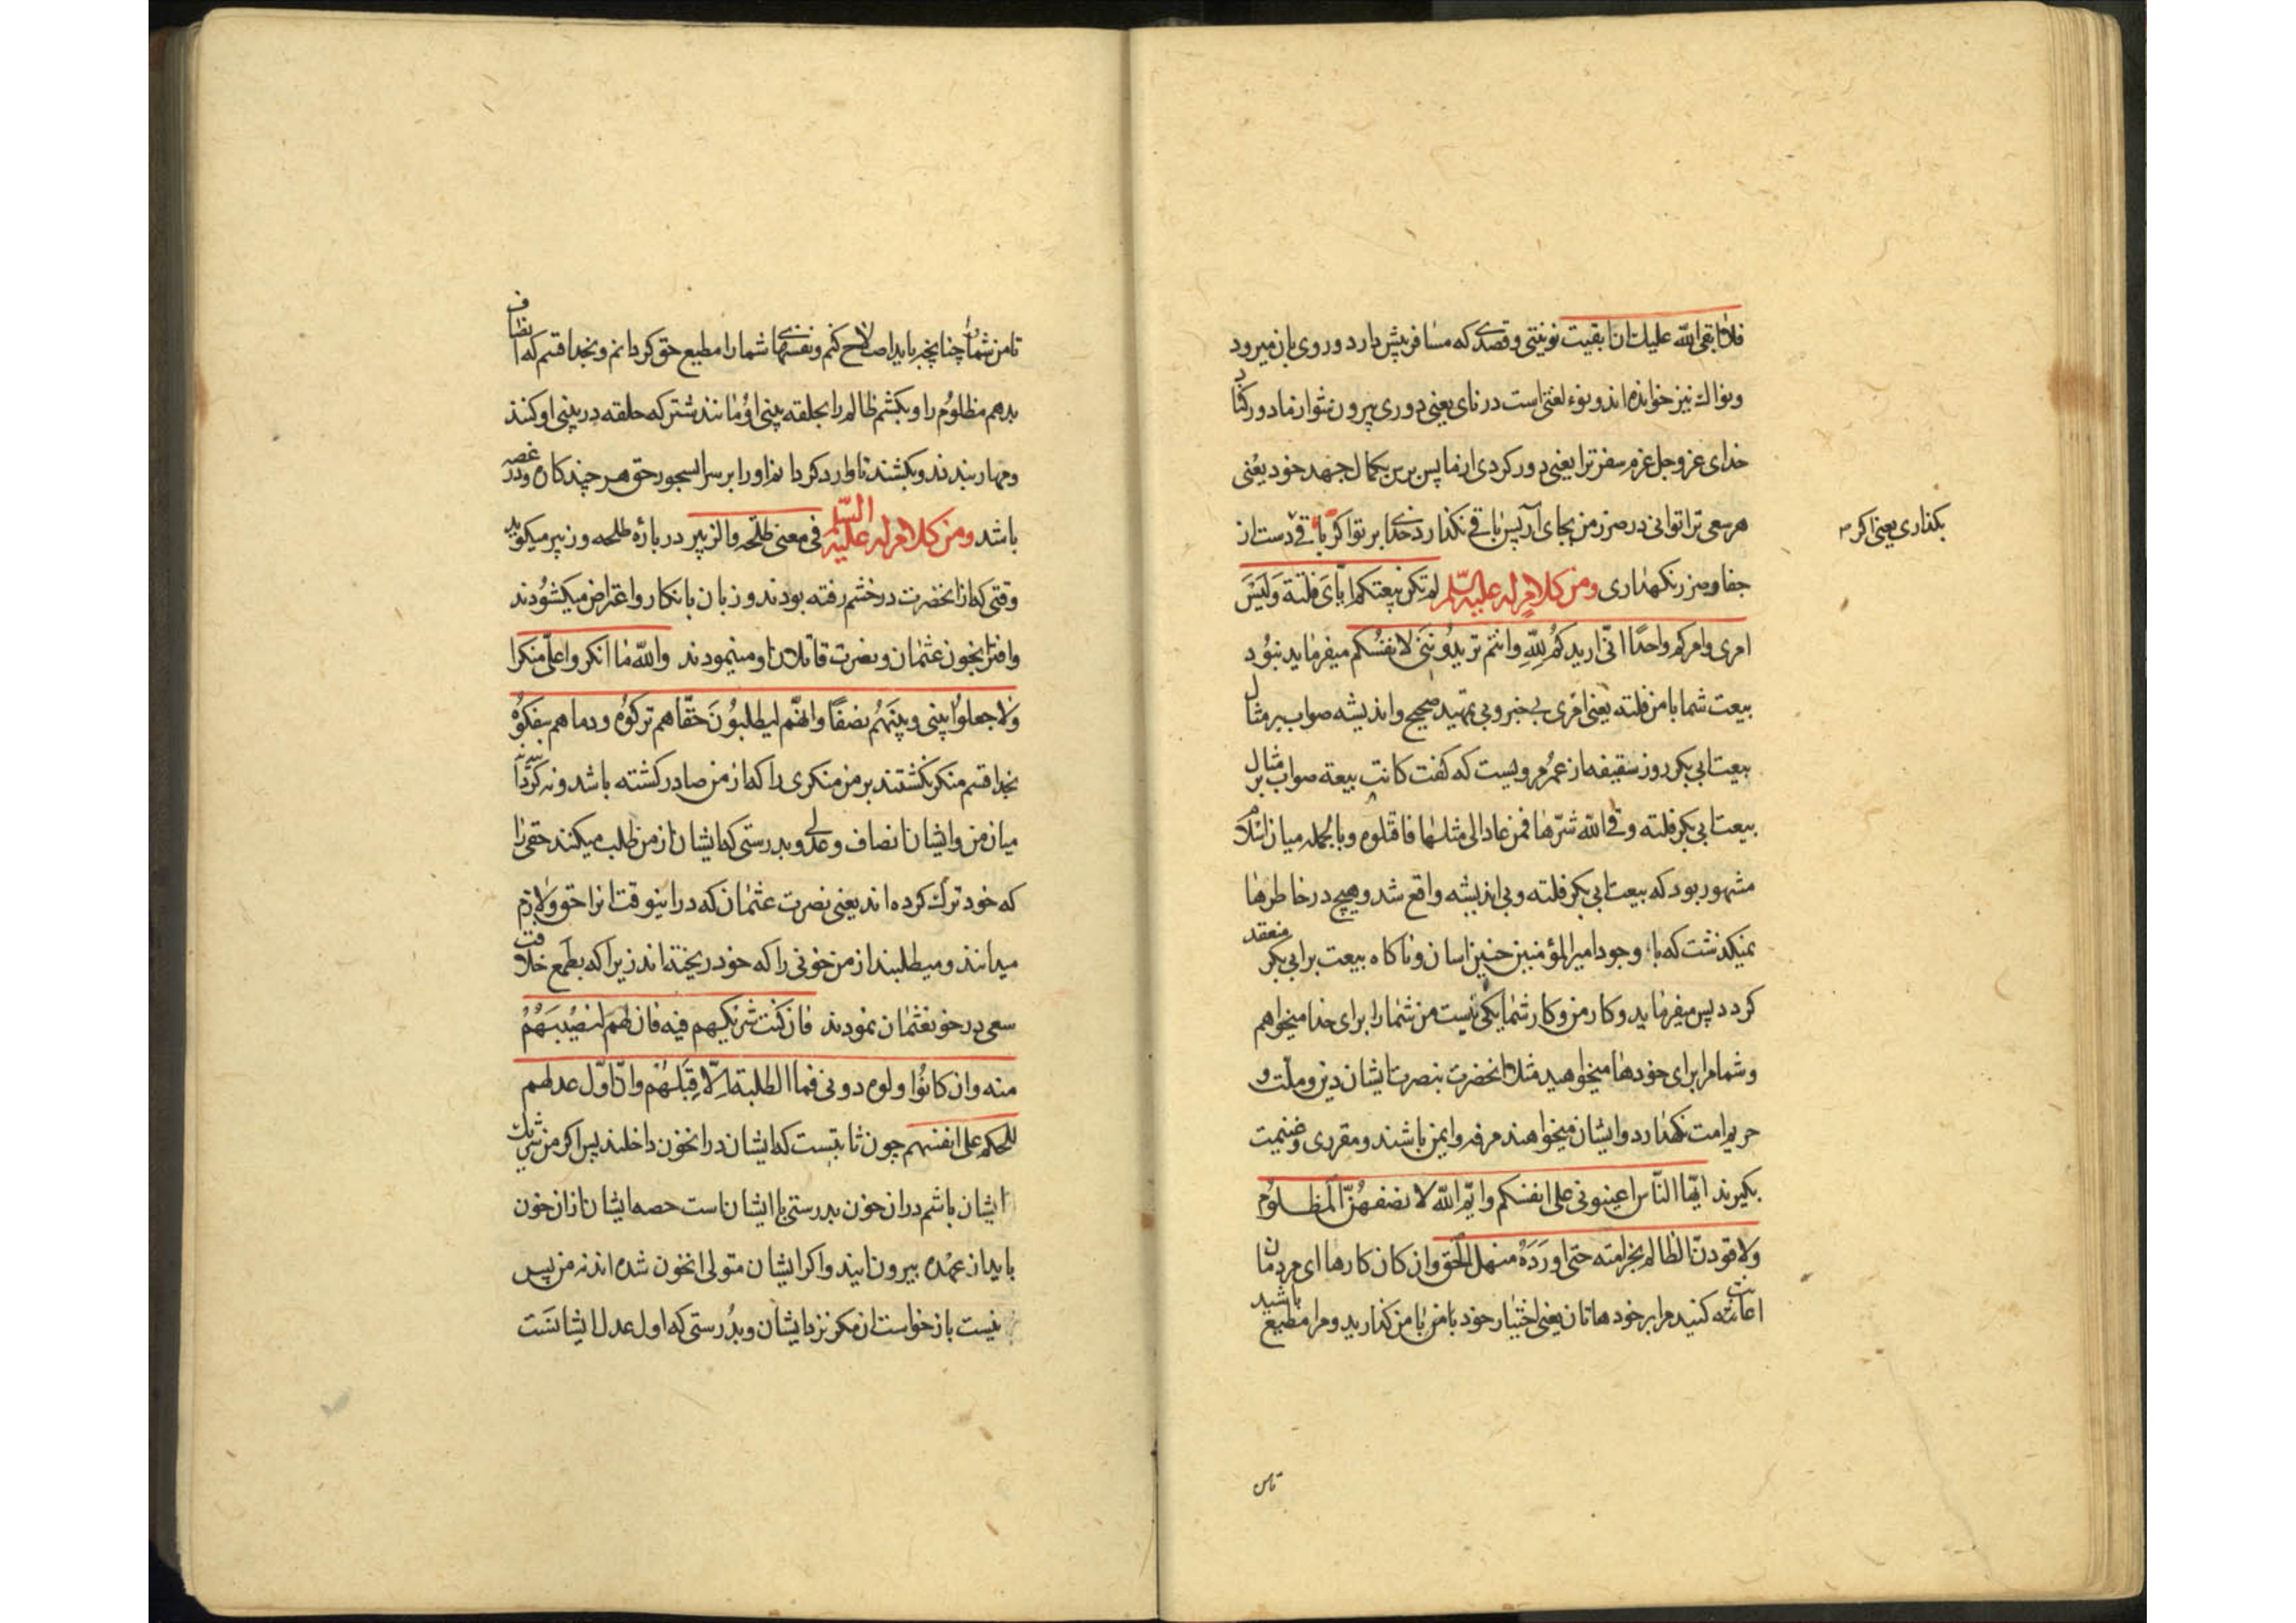 فلا ابقی الله علیك ان ابقیت نونیتی و قصدی که مسافر پیش دارد و روی بان میرود
و نواك نیز خوانده اند و نوء لغتی است در نای یعنی دوری بیرون شو از ما دور کناد
خدای عز و جل عزم سفر ترا یعنی دور کردی از ما پس برس بکمال جهد خود یعنی
هر سعی ترا توانی در ضرر من بجای آر پس باقی نگذارد خدا بر تو اکر باقی دست از
بکذاری یعنی اکر
جفا و ضرر نکهداری ومن کلام له علیه السلم لم تکن بیعتکم ایای فلتة ولیس
امری وامرکم واحدا انی اریدکم لله وانتم تریدوننی لانفسکم میفرماید نبود
بیعت شما با من فلته یعنی امری بی خبر و بی تمهید صحیح و اندیشه صواب بر مثال
بیعت ابی بکر روز سقیفه از عمر مرویست که کفت کانت بیعة صواب بر مثال
بیعت ابی بکر فلته وقی الله شرها فمن عاد الی مثلها فاقتلوه و بالجمله میان اسلام
مشهور بود که بیعت ابی بکر فلته و بی اندیشه واقع شد و هیچ در خاطرها
نمیکذشت که با وجود امیر المؤمنین چنین اسان و ناکاه بیعت بر ابی بکر منعقد
کردد پس میفرماید و کار من و کار شما یکی نیست من شما را برای خدا میخواهم
و شما مرا برای خودها میخواهید مثلا انحضرت بنصرت ایشان دین و ملت و
حریم امت نکهدارد و ایشان میخواهند مرفه و ایمن باشند و مقرری و غنیمت
بکیرند ایها الناس اعینونی علی انفسکم وایم الله لانصفن المظلوم
ولاقودن الظالم بخزامته حتی اورده منهل الحق وان کان کارها ای مردمان
اعانت کنید مرا بر خودهاتان یعنی اختیار خود با من بامن کذارید و مرا مطیع باشید
تا من
تا من شما را چنانچه باید اصلاح کنم و نفسهای شما را مطیع حق کردانم و بخدا قسم که انصاف
بدهم مظلوم را و بکشم ظالم را بحلقه بینی او مانند شتر که حلقه در بینی او کنند
و مهار بندند و بکشند تا وارد کردانم او را بر سر ابشخور حق هر چند کاره و در غصه
باشد ومن کلام له علیه السلم فی معنی طلحه والزبیر در باره طلحه و زبیر میکوید
وقتی که از انحضرت در خشم رفته بودند و زبان بانکار و اعتراض میکشودند
و افترا بخون عثمان و نصرت قاتلان او مینمودند والله ما انکروا علی منکرا
ولا جعلوا بینی وبینهم نصفا وانهم لیطلبون حقا هم ترکوه ودما هم سفکوه
بخدا قسم منکر نکشتند بر من منکری را که از من صادر کشته باشد و نه کرداند
میان من و ایشان انصاف و عدلی و بدرستی که ایشان از من طلب میکنند حقی را
که خود ترك کرده اند یعنی نصرت عثمان که در اینوقت انرا حق و لازم
میدانند و میطلبند از من خونی را که خود ریخته اند زیرا که بطمع خلافت
سعی در خون عثمان نمودند فان کنت شریکهم فیه فان لهم لنصیبهم
منه وان کانوا ولوه دونی فما الطلبة الا قبلهم وان اول عدلهم
للحکم علی انفسهم چون ثابتست که ایشان در انخون داخلند پس اکر من شریك
ایشان باشم در ان خون بدرستی با ایشان است حصه ایشان از ان خون
باید از عهده بیرون ایند و اکر ایشان متولی انخون شده اند نه من پس
نیست بازخواست ان مکر نزد ایشان و بدرستی که اول عدل ایشانست